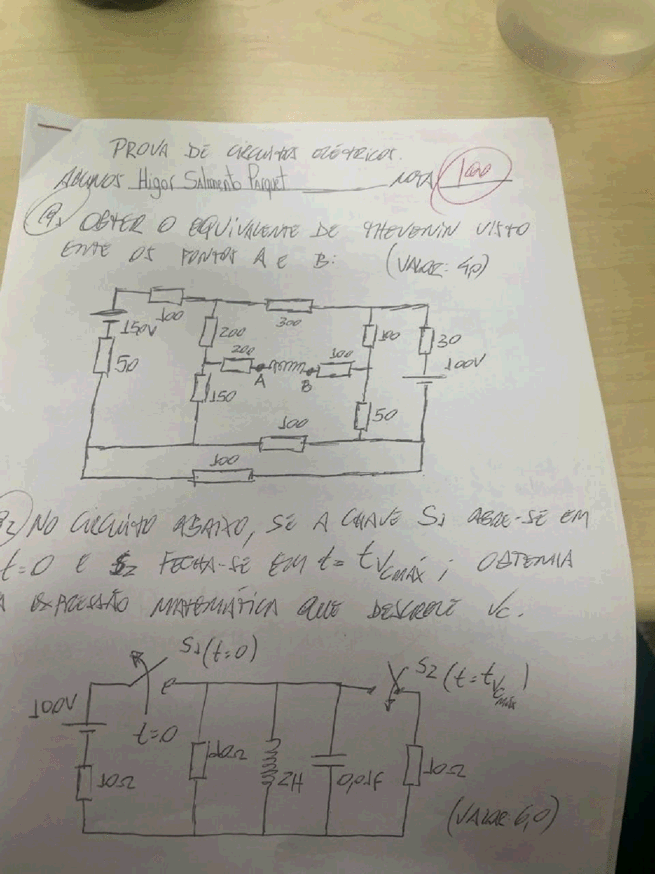 PROVA DE CIRCUITOS ELÉTRICOS.
ALUNOS Higor NOTA 100
1ª. OBTER O EQUIVALENTE DE THEVENIN VISTO
ENTE OS PONTOS A E B: (VALOR: 4,0)
100
300
150V
200
100
30
50
200
100
100V
A
B
150
50
100
100
2) NO CIRCUITO ABAIXO, SE A CHAVE S1 ABRE-SE EM
t=0 E S2 FECHA-SE EM t= tVCMÁX; OBTENHA
A EXPRESSÃO MATEMÁTICA QUE DESCREVE VC.
S1(t=0)
S2 (t=tVCMÁX)
100V
t=0
10Ω
10Ω
2H
0,01F
10Ω
(VALOR: 6,0)